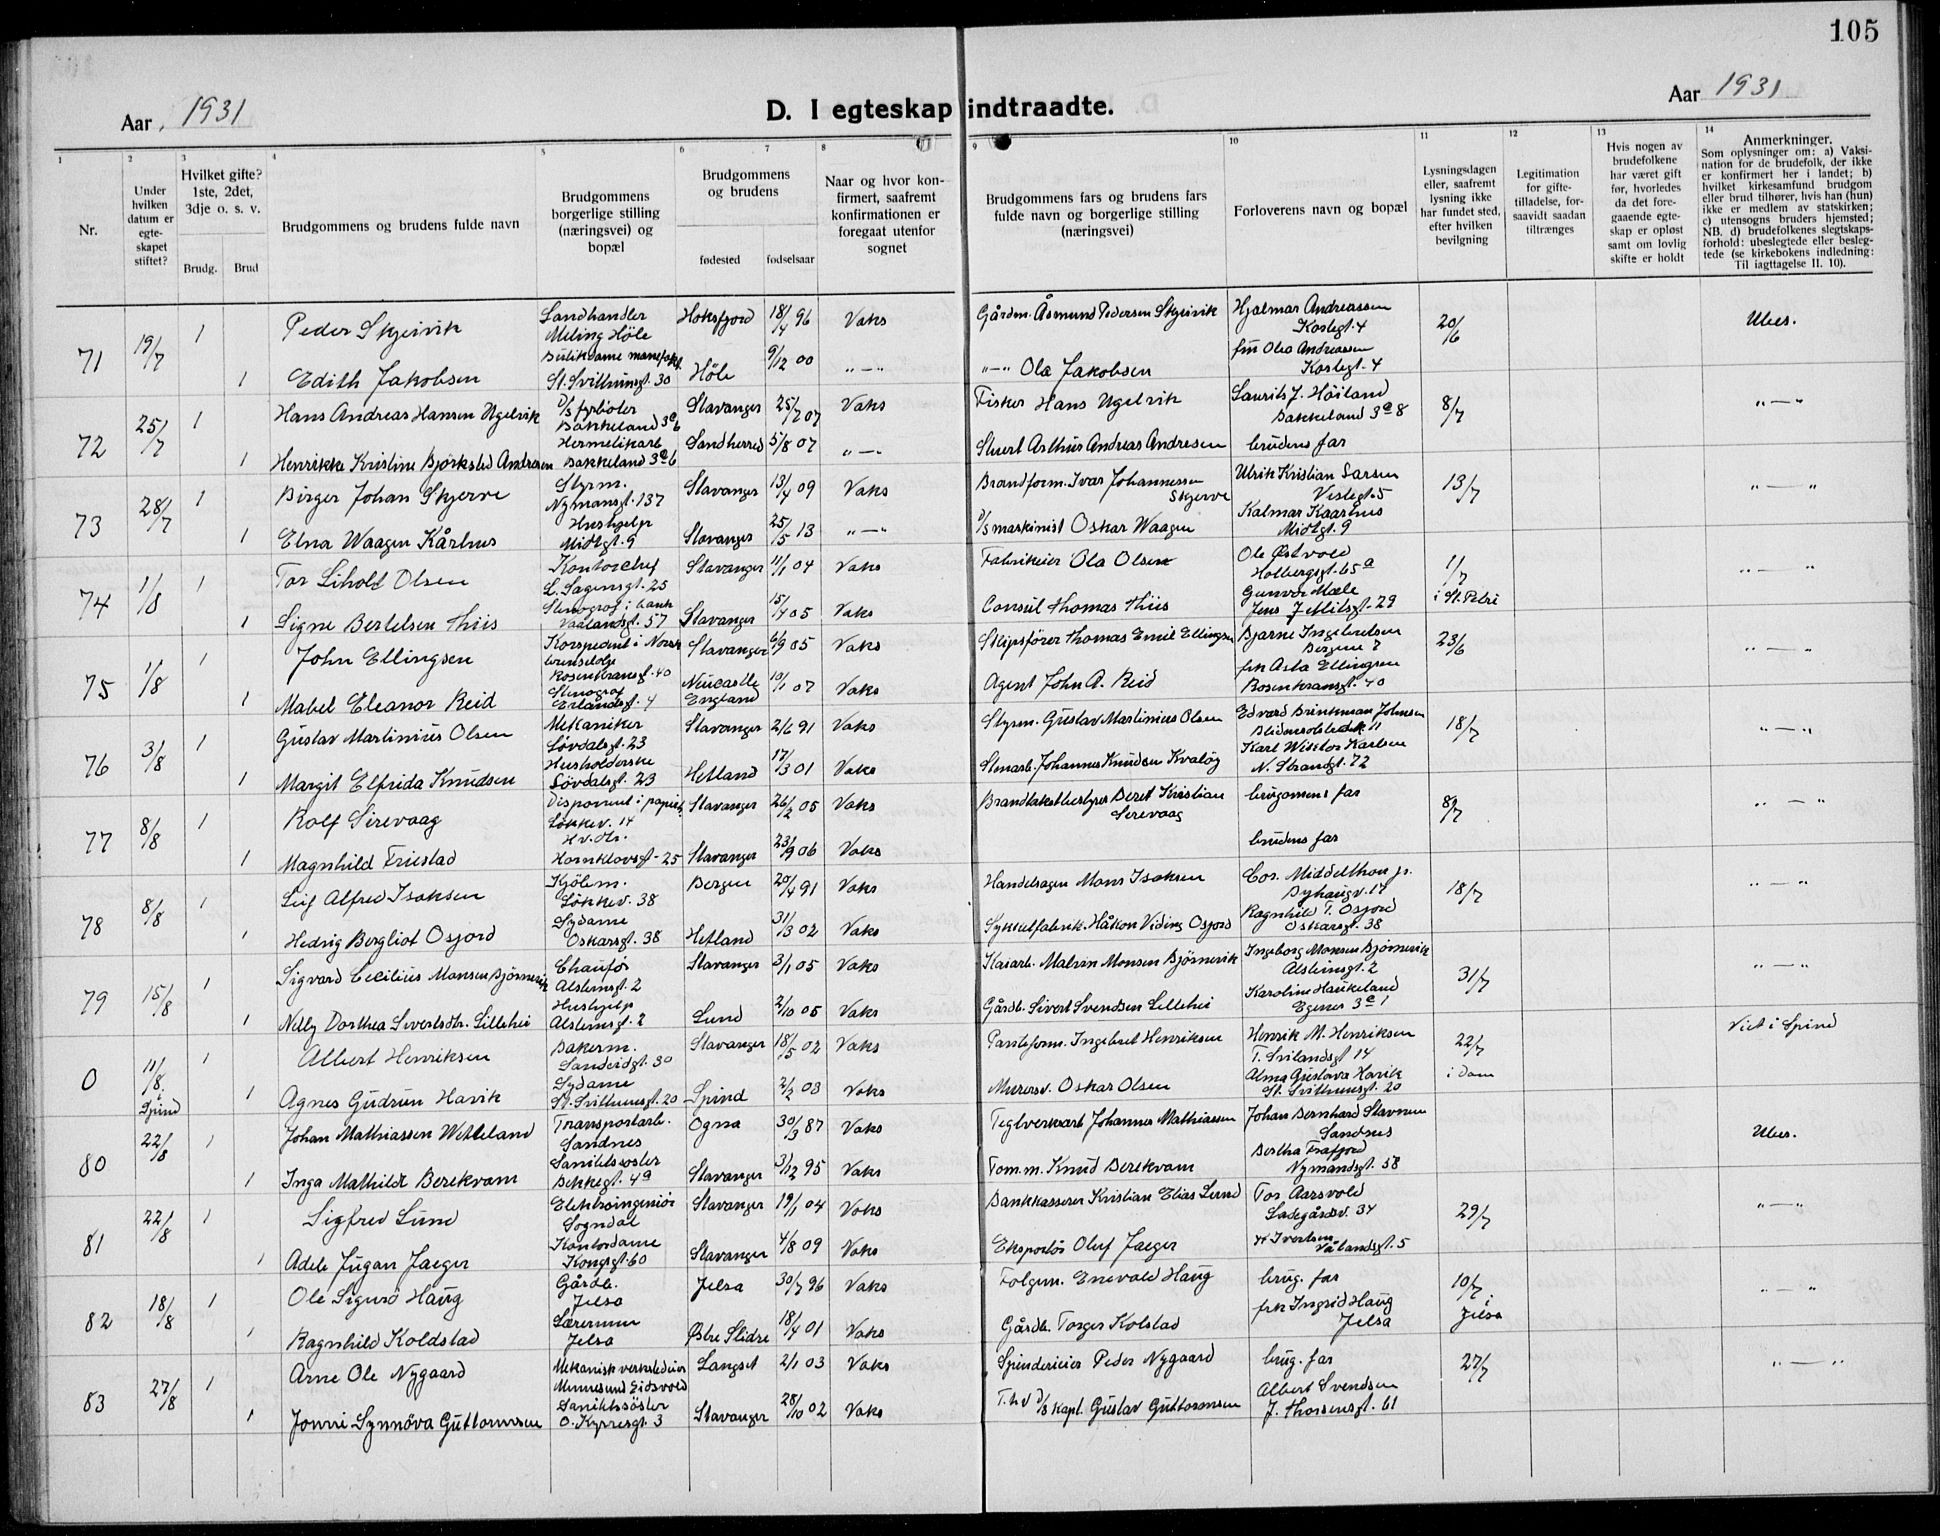 105
Aar 1931
D. I egteskap indtraadte.
Aar 1931
1 2 3 4 5 6 7 8 9 10 11 12 13 14
Nr.
Under hvilken datum er egte-skapet stiftet?
Hvilket gifte? 1ste, 2det, 3dje o. s. v.
Brudg. Brud
Brudgommens og brudens fulde navn
Brudgommens borgerlige stilling (næringsvei) og bopæl
Brudgommens og brudens
fødested fødselsaar
Naar og hvor kon-firmert, saafremt konfirmationen er foregaat utenfor sognet
Brudgommens fars og brudens fars fulde navn og borgerlige stilling (næringsvei)
Forloverens navn og bopæl
Lysningsdagen eller, saafremt lysning ikke har fundet sted, efter hvilken bevilgning
Legitimation for gifte-tilladelse, for-saavidt saadan tiltrænges
Hvis nogen av brudefolkene har været gift før, hvorledes da det fore-gaaende egte-skap er opløst samt om lovlig skifte er holdt
Anmerkninger.
Som oplysninger om: a) Vaksi-nation for de brudefolk, der ikke er konfirmert her i landet; b) hvilket kirkesamfund brudgom eller brud tilhører, hvis han (hun) ikke er medlem av statskirken; c) utensogns bruders hjemsted; NB. d) brudefolkenes slegtskaps-forhold: ubeslegtede eller besleg-tede (se kirkebokens indledning: Til iagttagelse II. 10).
71 19/7 1 Peder Skjeivik Landhandler Meling Høle 18/4 96 Vaks Gårdm. Åsmund Pedersen Skjeivik Hjalmar Andreassen 20/6 Ubes.
1 Edith Jakobsen St. Svithunsgt. 30 Høle 9/12 00 "—" "—" Ola Jakobsen fru Olea Andreassen
72 25/7 1 Hans Andreas Hansen Ugelvik D/S fyrbøter Bakkeland 3a 6 Stavanger 25/7 07 Vaks Fisker Hans Ugelvik Laurits J. Høiland Bakkeland 3a 8 8/7 "—"
1 Henrikke Kristine Bjørksted Andresen Hermetikarb. Bakkeland 3a 6 Sandherred 5/8 07 "—" Stuert Arthur Andreas Andresen brudens far
73 28/7 1 Birger Johan Skjerve Styrm. Nymansgt. 137 Stavanger 13/4 09 Vaks Brandform. Ivar Johannessen Skjerve Ulrik Kristian Larsen 13/7 "—"
1 Elna Waagen Kårhus Hushjelp Midtgt. 9 Stavanger 25/5 13 "—" D/S maskinist Oskar Waagen Kalmar Kaarhus Midtgt. 9
74 1/8 1 Tor Liholt Olsen Kontorchef L. Sagensgt. 25 Stavanger 11/1 04 Vaks Fabrikeier Ola Olsen Ole Østvold Holbergsgt. 65a 1/7 i St. Petri "—"
1 Signe Bertelsen Thiis Stenograf i bank Vaalandsgt. 57 Stavanger 15/4 05 Vaks Consul Thomas Thiis Gunvor Mæle 29
75 1/8 1 John Ellingsen Rosenkransgt. 40 Stavanger 6/9 05 Vaks Skipsfører Thomas Emil Ellingsen Bjarne Ingebretsen 23/6 "—"
1 Mabel Eleanor Reid Stenograf Erlandsgt. 4 Neucastle England 10/1 07 Vaks Agent John A. Reid frk Asta Ellingsen Rosenkransgt. 40
76 3/8 1 Gustav Martinius Olsen Mekaniker Løvdalsgt. 23 Stavanger 2/6 91 Vaks Styrm. Gustav Martinius Olsen Edvard Brinkman Johnsen 18/7 "—"
1 Margit Elfrida Knudsen Husholderske Løvdalsgt. 23 Hetland 17/3 01 Vaks Stenarb. Johannes Knudsen Kvaløy Karl Wiktor Karlsen N. Strandgt. 72
77 8/8 1 Rolf Sirevaag Løkkev. 14 Stavanger 26/2 05 Vaks Brandtakstbestyrer Beret Kristian Sirevaag brugomens far 8/7 "—"
1 Magnhild Friestad Hv. dtr. Hornklovsgt. 25 Stavanger 23/9 06 Vaks brudens far
78 8/8 1 Leif Alfred Isaksen Kjølem. Løkkev. 38 Bergen 20/4 91 Vaks Handelsagen Mons Isaksen Cor. Middelthon jr. Byhaugv. 17 18/7 "—"
1 Hedvig Bergliot Osjord Sydame Oskarsgt. 38 Hetland 31/3 02 Vaks Sykkelfabrik. Håkon Viding Osjord Ragnhild T. Osjord Oskarsgt. 38
79 15/8 1 Sigvard Cecilius Monsen Bjørnevik Chaufør Alsteinsgt. 2 Stavanger 3/1 05 Vaks Kaiarb. Malvin Monsen Bjørnevik Ingeborg Monsen Bjørnevik Alsteinsgt. 2 31/7 "—"
1 Nelly Dorthea Sivertsdtr. Lillehei Hushjelp Alsteinsgt. 2 Lund 2/10 05 Vaks Gårdb. Sivert Svendsen Lillehei Karoline Haukeland Egenes 3a 1
0 11/8 i Spind 1 Albert Henriksen Bakerm. Sandeidgt. 30 Stavanger 18/5 02 Vaks Ingebret Henriksen Henrik M. Henriksen T. Svilandsgt 14 22/7 i Dom Viet i Spind
1 Agnes Gudrun Havik Sydame St. Svithunsgt. 20 Spind 2/2 03 Vaks Murersv. Oskar Olsen Alma Gustava Havik St. Svithunsgt. 20
80 22/8 1 Johan Mathiassen Wetteland Transportarb. Sandnes Ogna 30/3 87 Vaks Teglverkarb Johannes Mathiassen Johan Bernhard Stavnem Sandnes Ubes.
1 Inga Mathilde Berekvam Sanitetssøster Bekkegt. 4a Stavanger 3/12 95 Vaks Tom.m. Knud Berekvam Bertha Frafjord Nymandsgt. 58
81 22/8 1 Sigfred Lund Elektroingeniør Sogndal Stavanger 19/1 04 Vaks Bankkasserer Kristian Elias Lund Tor Aarsvold Ladegårdsv. 34 29/7 "—"
1 Adele Jugan Jaeger Kontordame Kongsgt. 60 Stavanger 4/8 09 Vaks Eksportør Oluf Jaeger K Ivertsen Vålandsgt. 5
82 18/8 1 Ole Sigurd Haug Gårdb. Jelsa Jelsa 30/7 96 Vaks Enevald Haug brug. far 10/7 i Jelsa "—"
1 Ragnhild Koldstad Lærerinne Jelsa Østre Slidre 18/4 01 Vaks Gårdb. Torger Kolstad frk Ingrid Haug Jelsa
83 27/8 1 Arne Ole Nygaard Mekanisk verkstedeier Minnesund Eidsvold Langset 2/1 03 Vaks Spinderieier Peder Nygaard brug. far 27/7 "—"
1 Jonni Synnöva Guttormsen Sanitetssøster O. Kyrresgt. 3 Stavanger 28/10 02 Vaks D/S Kapt. Gustav Guttormsen Albert Svendsen J. Thorsensgt. 61